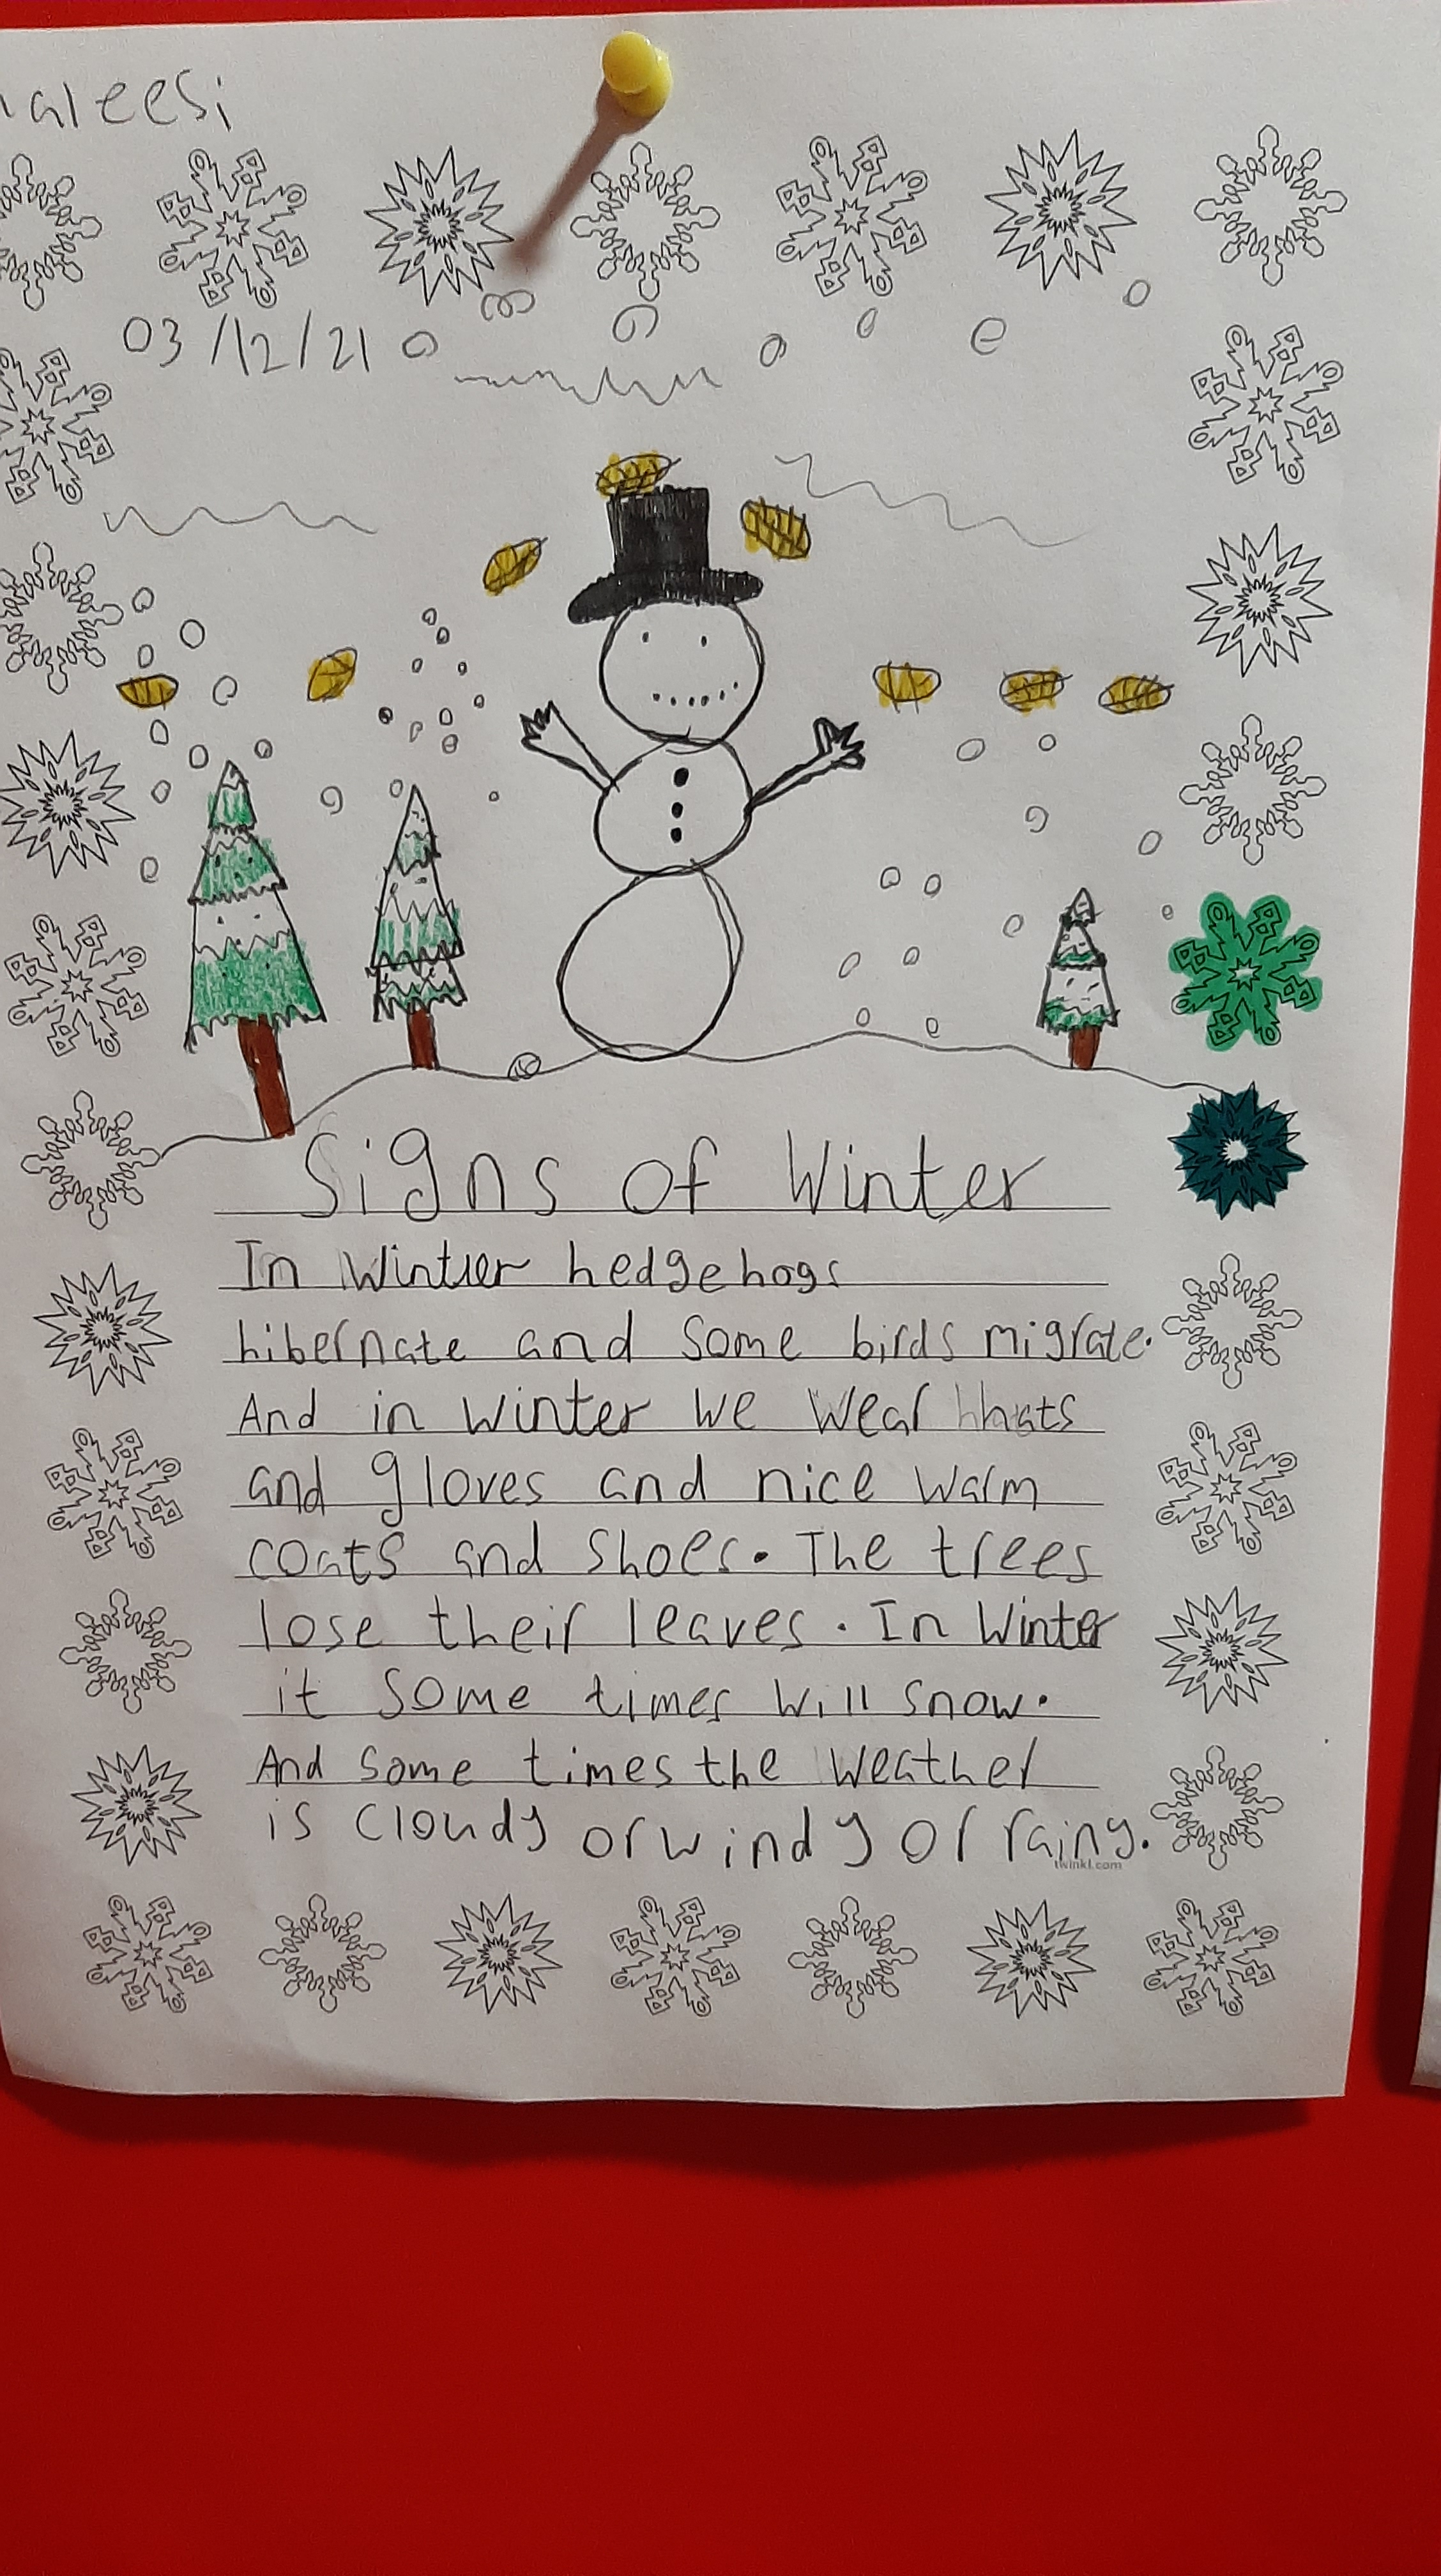 aleesi
03/12/21
Signs of Winter
In Winter hedgehogs
hibernate and some birds migrate.
And in winter we wear hats
and gloves and nice warm
coats and shoes. The trees
lose their leaves. In Winter
it some times will snow.
And some times the weather
is cloudy or windy or rainy.
twinkl.com